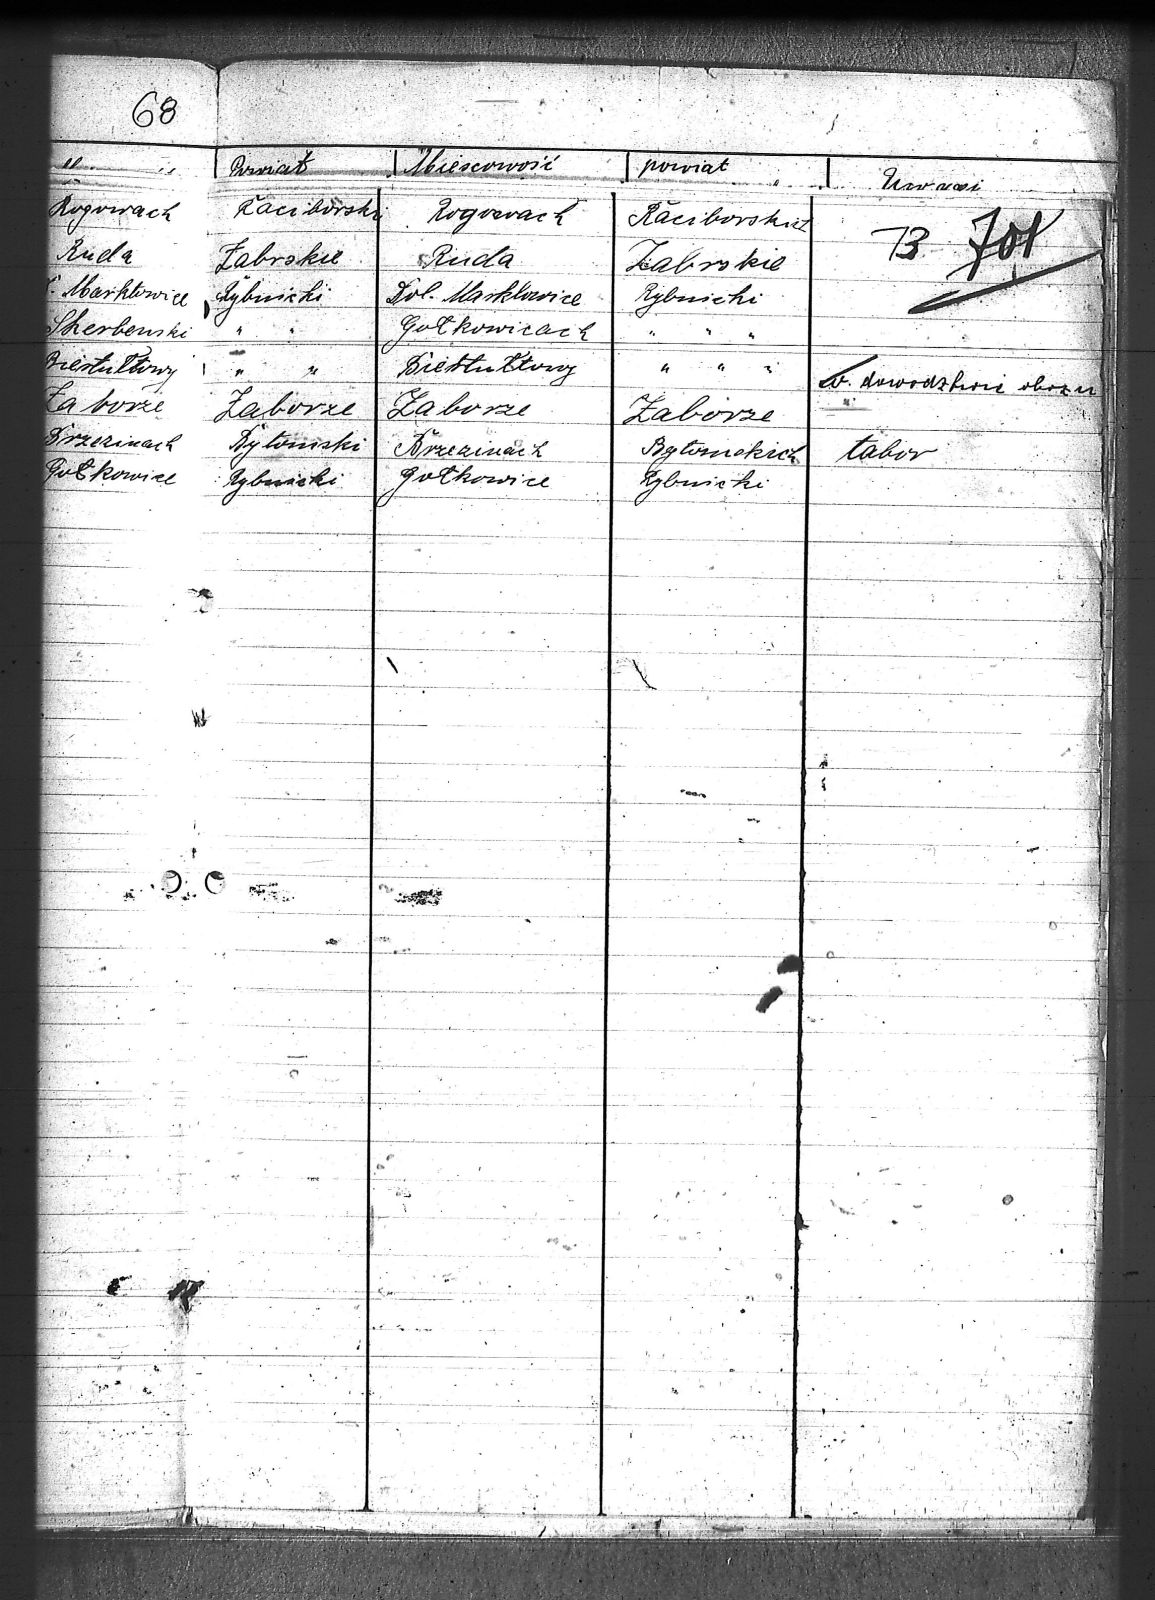 68
" " Powiat Miescowość powiat " Uwagi
Rogowach Raciborski Rogowach Raciborskich
Ruda Zabrskie Ruda Zabrskie 73 701
Marklowice Rybnicki Dol. Marklowice Rybnicki
Skerbenski " " Gołkowicach " " "
Biertułtowy " " Biertułtowy " " "
Zaborze Zaborze Zaborze Zaborze w. dowodztwie obozu
Brzezinach Bytomski Brzezinach Bytomskich tabor
Gołkowice Rybnicki Gołkowice Rybnicki